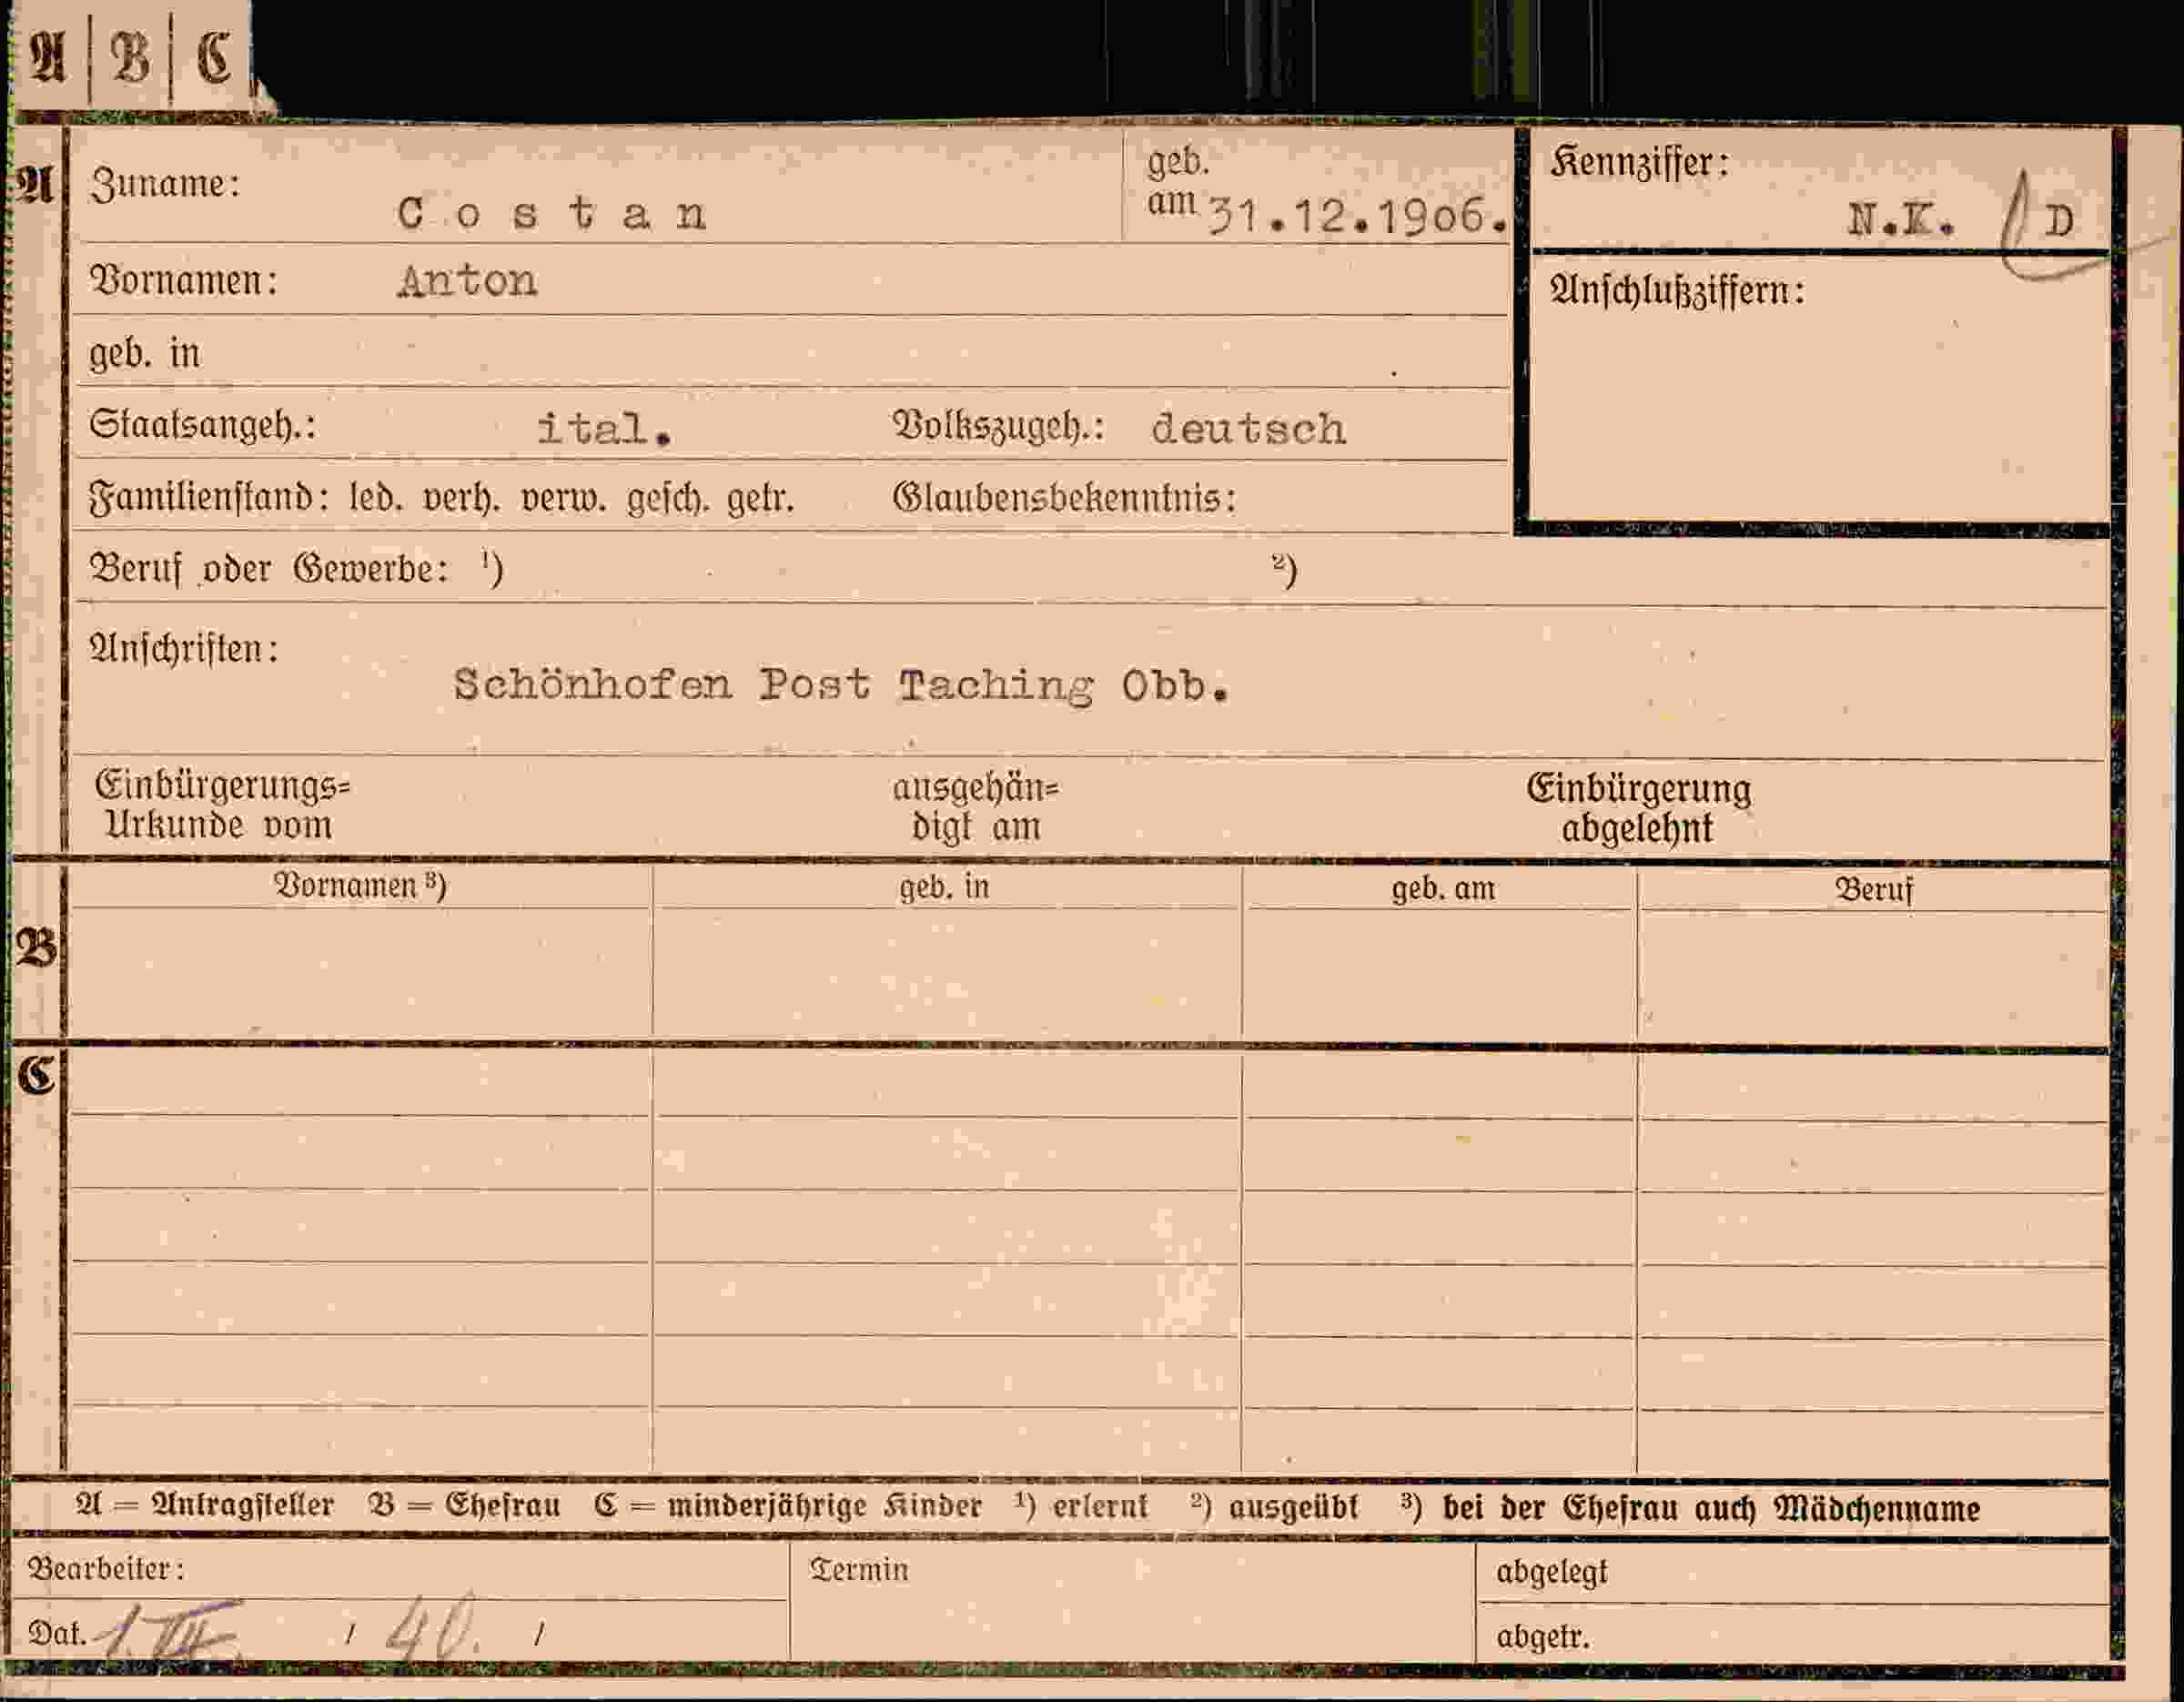 A | B | C
A Zuname: Costan geb. am 31.12.1906. Kennziffer: N.K. D
Vornamen: Anton
Anschlußziffern:
geb. in
Staatsangeh.: ital. Volkszugeh.: deutsch
Familienstand: led. verh. verw. gesch. getr. Glaubensbekenntnis:
Beruf oder Gewerbe: ¹) ²)
Anschriften:
Schönhofen Post Taching Obb.
Einbürgerungs= ausgehän= Einbürgerung
Urkunde vom digt am abgelehnt
Vornamen ³) geb. in geb. am Beruf
B
C
A = Antragsteller B = Ehefrau C = minderjährige Kinder ¹) erlernt ²) ausgeübt ³) bei der Ehefrau auch Mädchenname
Bearbeiter: Termin abgelegt
Dat. / 40. / abgetr.